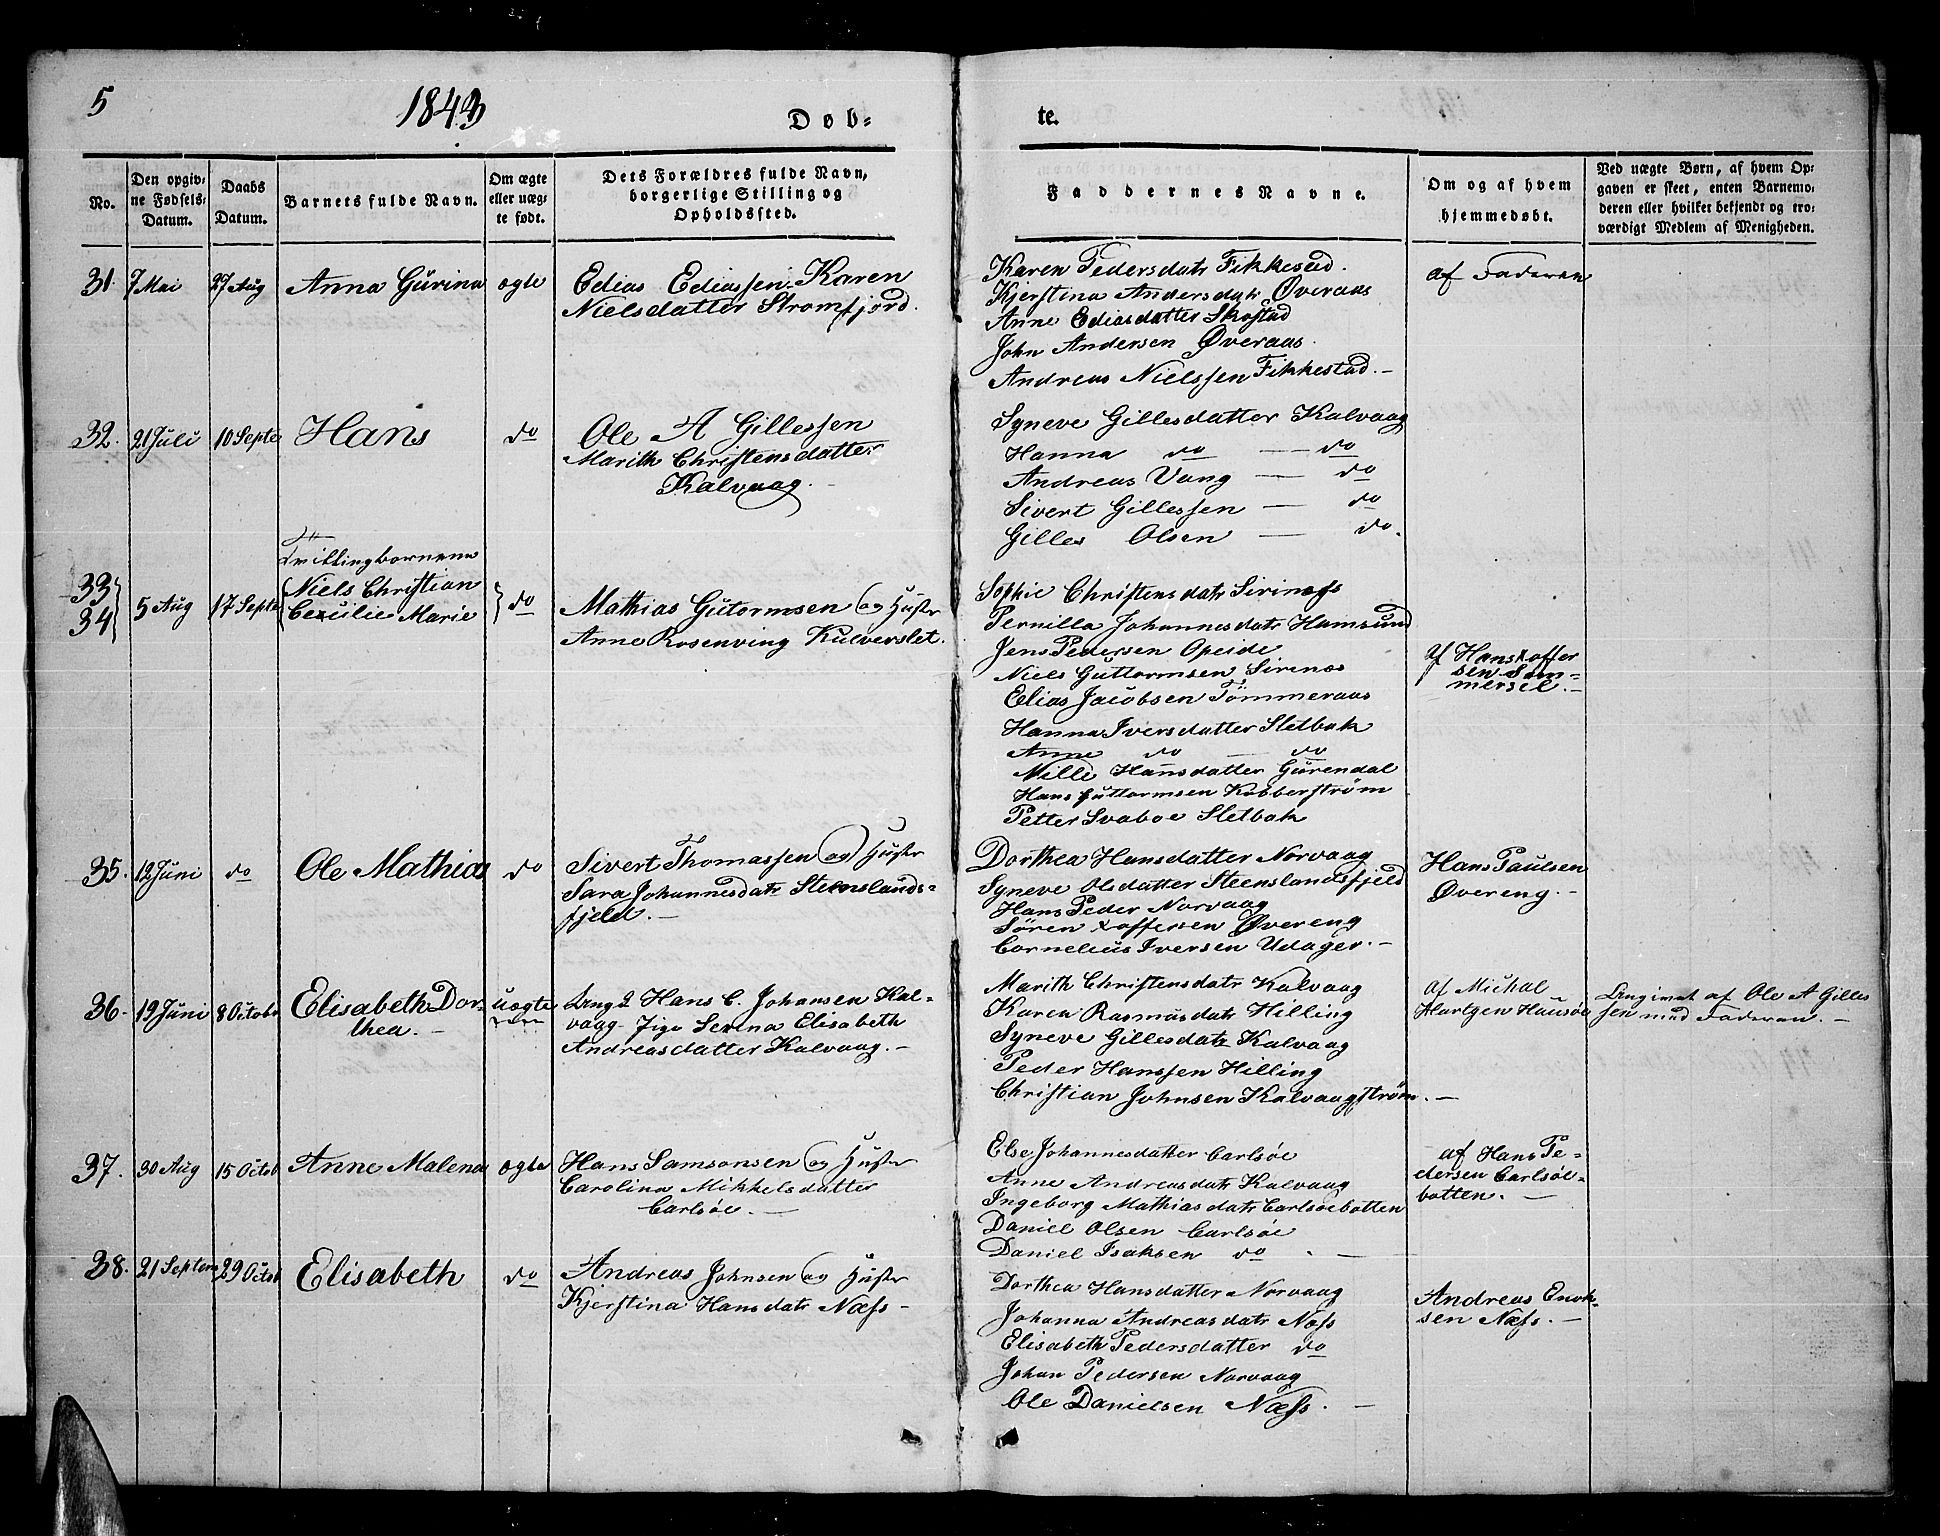 5
1843
Døb-
te.
No.
Den opgiv-
ne Fødsels-
Datum.
Daabs
Datum.
Barnets fulde Navn.
Om ægte
eller uæg-
te født.
Dets Forældres fulde Navn,
borgerlige Stilling og
Opholdssted.
Faddernes Navne.
Om og af hvem
hjemmedøbt.
Ved uægte Børn, af hvem Op-
gaven er skeet, enten Barnemo-
deren eller hvilket bekjendt og tro-
værdigt Medlem af Menigheden.
31. 7 Mai 27 Aug Anna Gurina ægte
Edias Ediassen Karen
Nielsdatter Stromfjord.
Karen Pedersdatr Fikkestad.
Kjerstina Andersdatr Øveraas
Anne Ediasdatter Skogstad
John Andersen Øveraas.
Andreas Nielssen Fikkestad.—
af Faderen
32. 21 Juli 10 Septe Hans do
Ole A Gillessen
Marith Christensdatter
Kalvaag.
Syneve Gillesdatter Kalvaag
Hanna do — do
Andreas Vang — do
Sivert Gillessen — do
Gilles Olsen — do.
33
34
5 Aug 17 Septe
Tvillingbornene
Niels Christian
Cecilie Marie
do
Mathias Gutormsen og Hustr
Anne Rosenving Kulverslet.
Sophie Christensdatr Sirinæss
Pernilla Johannesdatr Hamsund
Jens Pedersen Opeide
Niels Guttormsen Sirenes
Elias Jacobsen Tømmeraas
Hanna Iversdatter Sletbak
Anne do — do
Nille Hansdatter Gørendal
Hans Guttormsen Kobberstrøm
Petter Svaboe Sletbak
af Hans Xoffer
sen Som=
mersel.—
35. 12 Juni do Ole Mathias do
Sivert Thomassen og Hustr
Sara Johannesdatr Steenslands=
fjeld.—
Dorthea Hansdatter Norvaag
Syneve Olsdatter Steenslandsfjeld
Hans Peder Norvaag
Sören Xoffersen Øvereng
Cornelius Iversen Udager.—
Hans Paulsen
Øvereng.—
36. 19 Juni 8 Octobr Elisabeth Dor=
thea.—
uægte
Ung. Hans C. Johansen Kal=
vaag. Pige Serina Elisabeth
Andreasdatter Kalvaag.—
Marith Christensdatr Kalvaag
Karen Rasmusdatr Hilling
Syneve Gillesdatr Kalvaag
Peder Hanssen Hilling
Christian Johnsen Kalvaagstrøm.—
af Michal
Hartgen Hausøe
Angivet af Ole A Gilles
sen med Faderen.—
37. 30 Aug 15 Octob Anne Malena ægte
Hans Samsonsen og Hustr
Carolina Mikkelsdatter
Carlsøe.—
Else Johannesdatter Carlsøe
Anne Andreasdatr Kalvaag
Ingeborg Mathiasdatr Carlsøebotten
Daniel Olsen Carlsøe
Daniel Isaksen do.—
af Hans Pe=
dersen Carlsøe-
botten.—
38. 21 Septem 29 Octob Elisabeth do
Andreas Johnsen og Hustr
Kjerstina Hansdatr Næss—
Dorthea Hansdatter Norvaag
Johanna Andreasdatr Næss
Elisabeth Pedersdatter do
Johan Pedersen Norvaag
Ole Danielsen Næss.—
Andreas Enok-
sen Næss.—